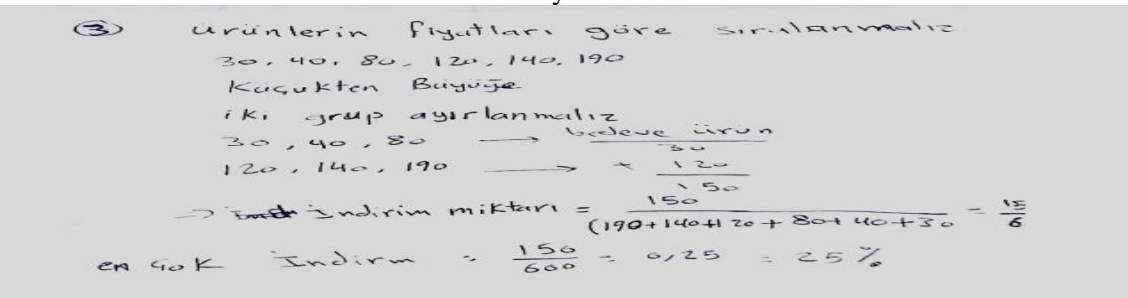 ③ ürünlerin fiyatları göre sıralanmalız
30, 40, 80, 120, 140, 190
Küçükten Büyüğe
iki grup ayırlanmalız
30, 40, 80 → bedeve ürün
30
120, 140, 190 → + 120
150
→ İndirim miktarı = 150 / (190+140+120+80+40+30 = 15/6
en çok İndirm = 150/600 = 0,25 = 25%